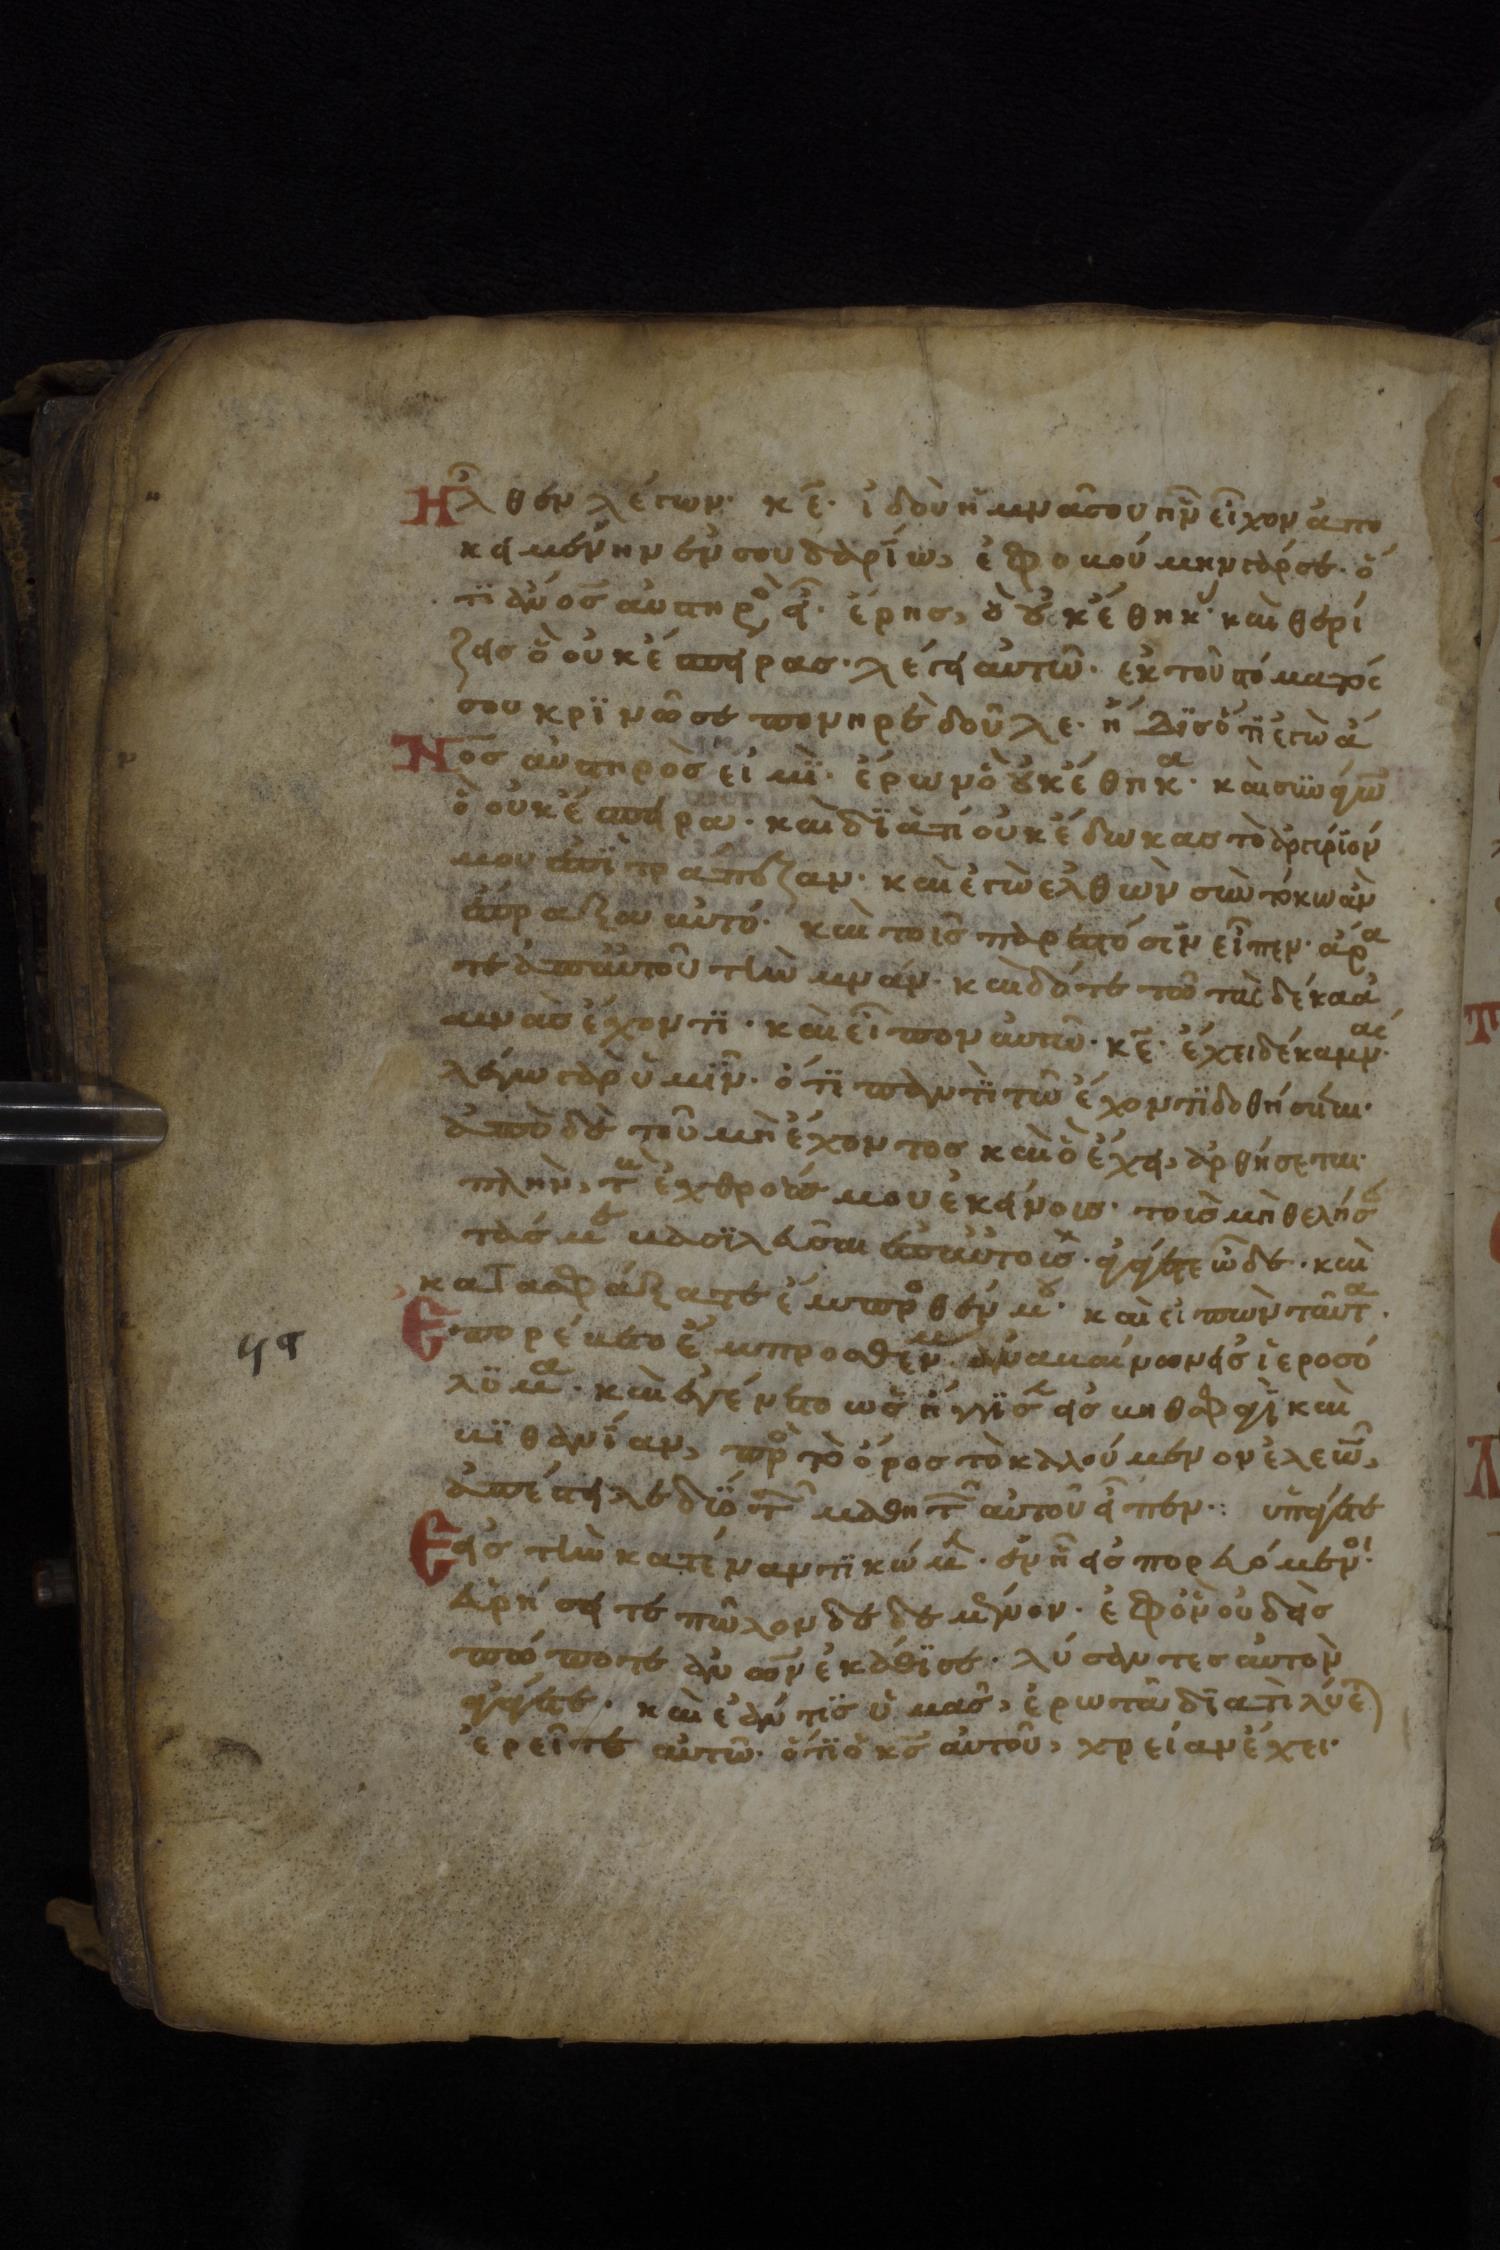 Ἦλθεν λέγων· κε̄· ἰδοὺ ἡ μνᾶ σου ἣν εἶχον ἀπο
κειμένην ἐν σουδαρίω, ἐφοκούμην γάρ σε· ὅ
τι ἄνος αὐστηρὸς εἶ· ἔρης, ὃ οὐκ ἔθηκας· καὶ θερί
ζεις ὃ οὐκ ἔσπειρας· λέγει αὐτῶ· ἐκ τοῦ στόματός
σου κρινῶ σε πονηρὲ δοῦλε· ἤδεις ὅτι ἐγὼ ἄ
Νος αὐστηρός εἰμι· ἔρω νὃ οὐκ ἔθηκα· καὶ συνάγω
ὃ οὐκ ἔσπειρα· καὶ διατί οὐκ ἔδωκας τὸ ἀργύριόν
μου ἐπὶ τράπεζαν· καὶ ἐγὼ ἐλθὼν σὺν τόκω ἂν
ἔπραξα αὐτό· καὶ τοῖς παρεστόσιν εἶπεν· ἄρα
τε ἀπ' αὐτοῦ τὴν μνάν· καὶ δότε τῶ τὰς δέκα
μνὰς ἔχοντι· καὶ εἶπον αὐτῶ· κε̄· ἔχει δέκα μνας·
λέγω γὰρ ὑμῖν· ὅτι παντὶ τῶ ἔχοντι δοθήσεται·
ἀπὸ δὲ τοῦ μὴ ἔχοντος καὶ ὃ ἔχει, ἀρθήσεται·
πλὴν, τοὺς ἐχθρούς μου ἐκείνοις· τοὶς μὴ θελήσαν
τάς με βασιλεῦσαι ἐπ' αὐτοῖς· ἀγάγετε ὧδε· καὶ
κατασφάξατε ἔμπροσθέν μου· καὶ εἰπὼν ταῦτα·
Ἐπορεύετο ἔμπροσθεν ἀναβαίνων εἰς ἱεροσό
λυμα· καὶ ἐγένετο ὡς ἤγγισεν εἰς βηθσφαγὶ καὶ
βιθανίαν, πρὸς τὸ ὄρος τὸ καλούμενον ἐλεῶν,
ἀπέστειλε δύο τῶν μαθητῶν αὐτοῦ εἶπεν· ὑπάγετε
Εἰς τὴν κατέναντι κώμην· ἐν ἧ εἰσπορευόμενοι
εὑρήσειτε πῶλον δεδεμένον· ἐφ' ὃν οὐδεὶς
πώποτε ἀνων ἐκάθισε· λύσαντες αὐτὸν
ἀγάγετε· καὶ ἐάν τις ὑμᾶς, ἐρωτᾶ διατί λύε
ἐρεῖτε αὐτῶ· ὅτι ὁ κς̄ αὐτοῦ, χρείαν ἔχει·